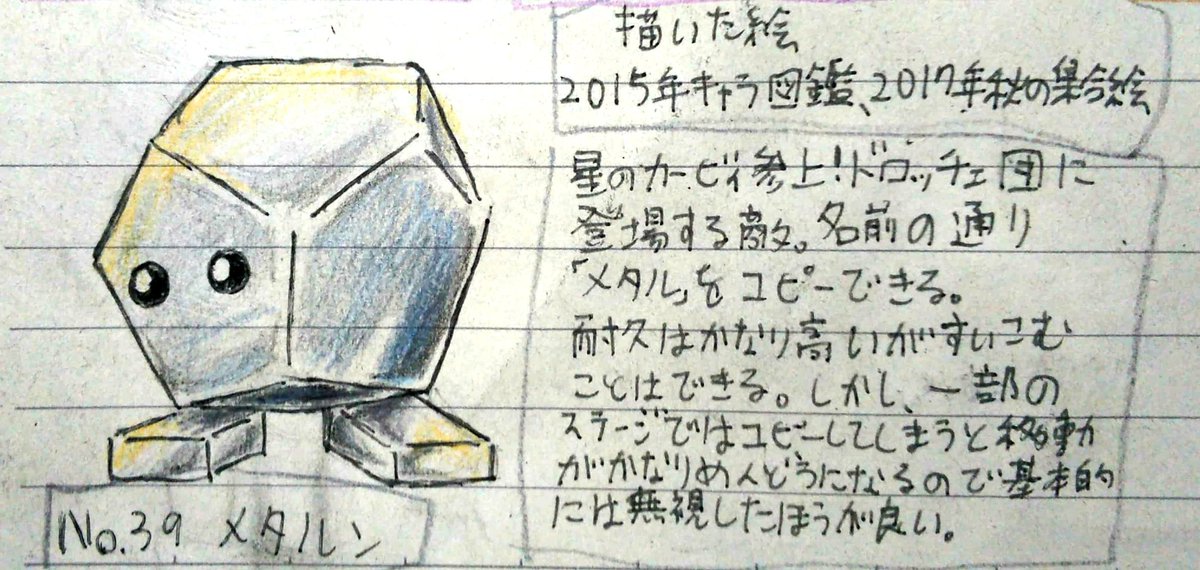 描いた絵
2015年キャラ図鑑、2017年秋の集合絵
星のカービィ参上!ドロッチェ団に
登場する敵。名前の通り
「メタル」をコピーできる。
耐久はかなり高いがすいこむ
ことはできる。しかし、一部の
ステージではコピーしてしまうと移動
がかなりめんどうになるので基本的
には無視したほうが良い。
No.39 メタルン